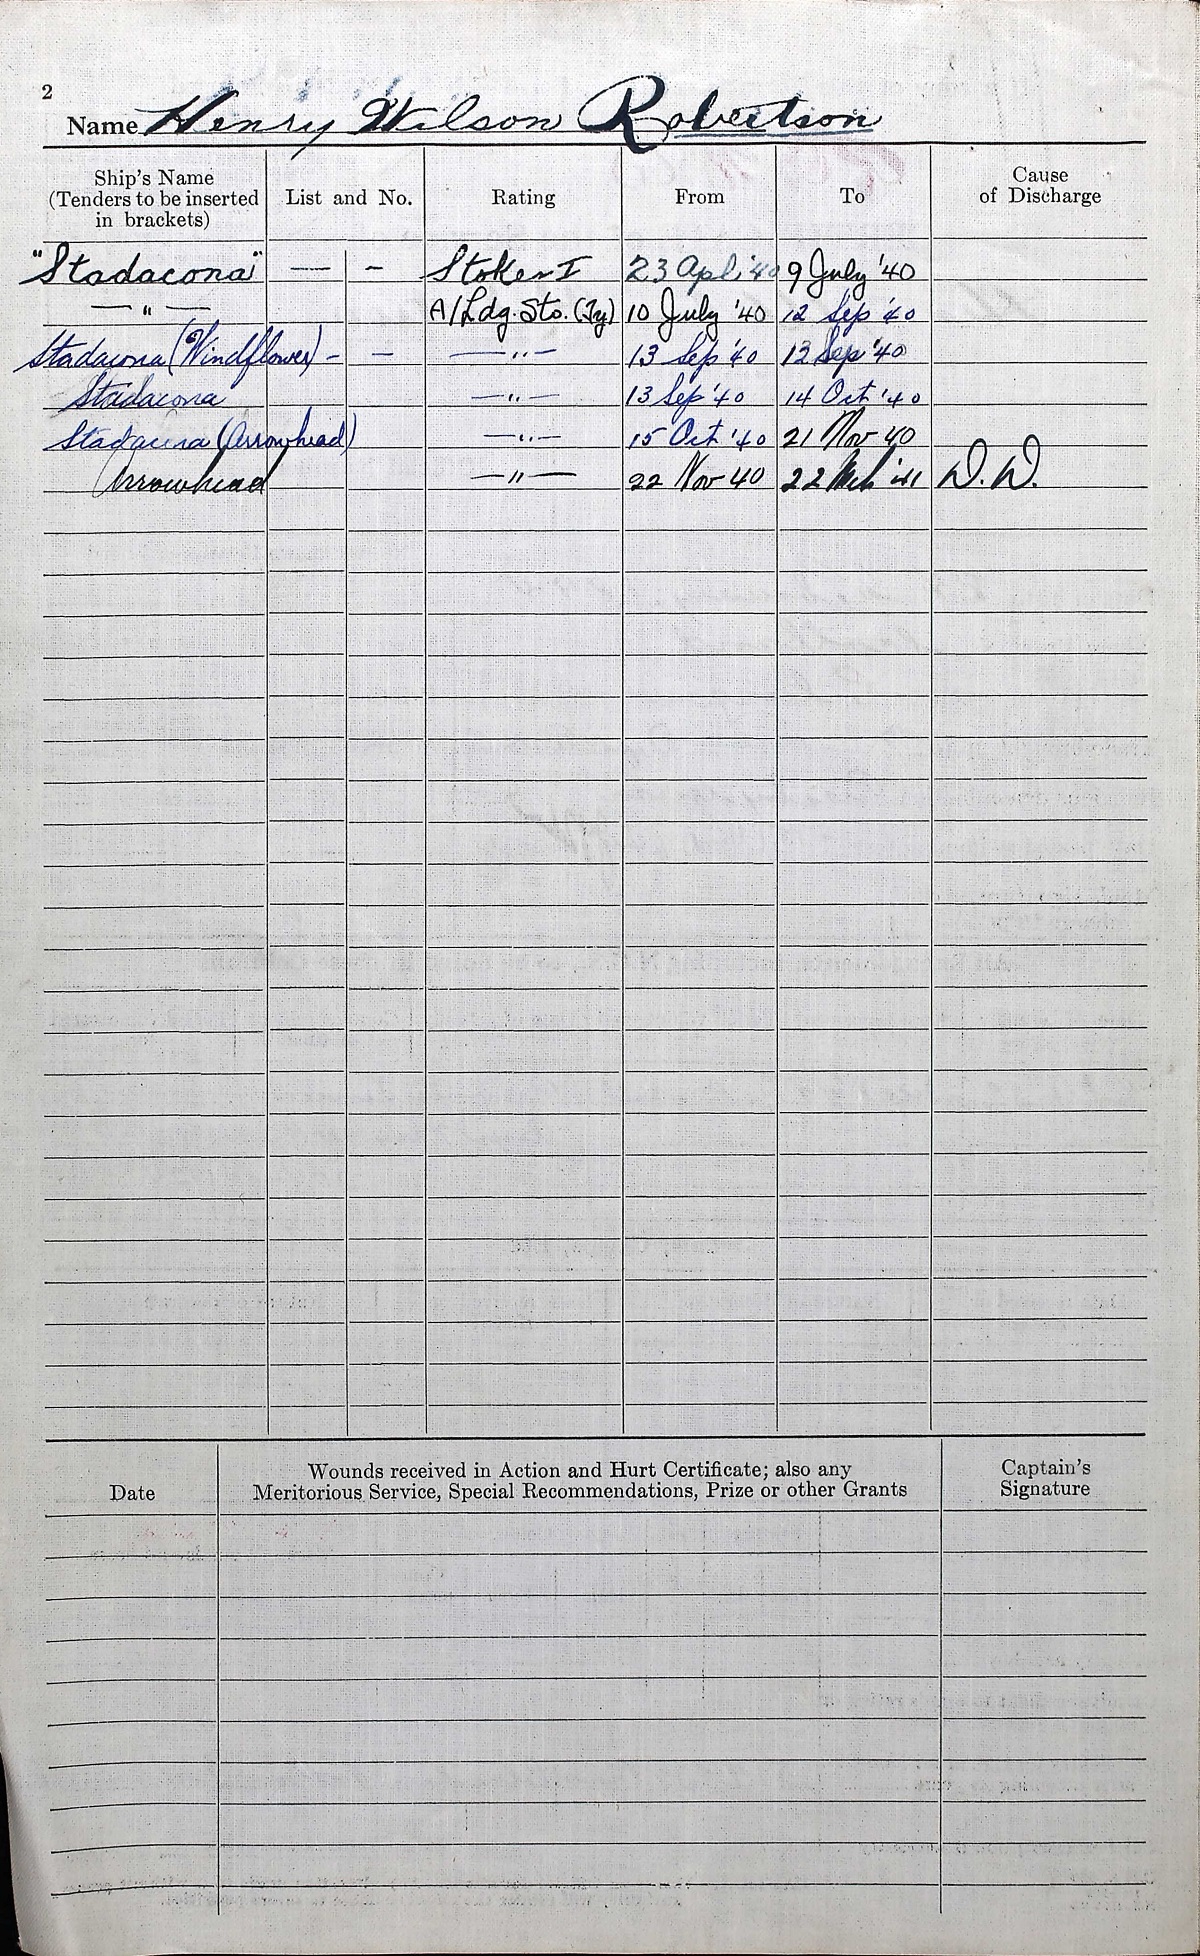 2
Name Henry Wilson Robertson
Ship's Name
(Tenders to be inserted
in brackets)
List and No.
Rating
From
To
Cause
of Discharge
"Stadacona" — - Stoker I 23 Apl '40 9 July '40
— " — A/Ldg. Sto. (Ty) 10 July '40 12 Sep '40
Stadacona (Windflower) - - — " — 13 Sep '40 12 Sep '40
Stadacona — " — 13 Sep '40 14 Oct '40
Stadacona (Arrowhead) — " — 15 Oct '40 21 Nov 40
Arrowhead — " — 22 Nov 40 22 Mch '41 D.D.
Date
Wounds received in Action and Hurt Certificate; also any
Meritorious Service, Special Recommendations, Prize or other Grants
Captain's
Signature